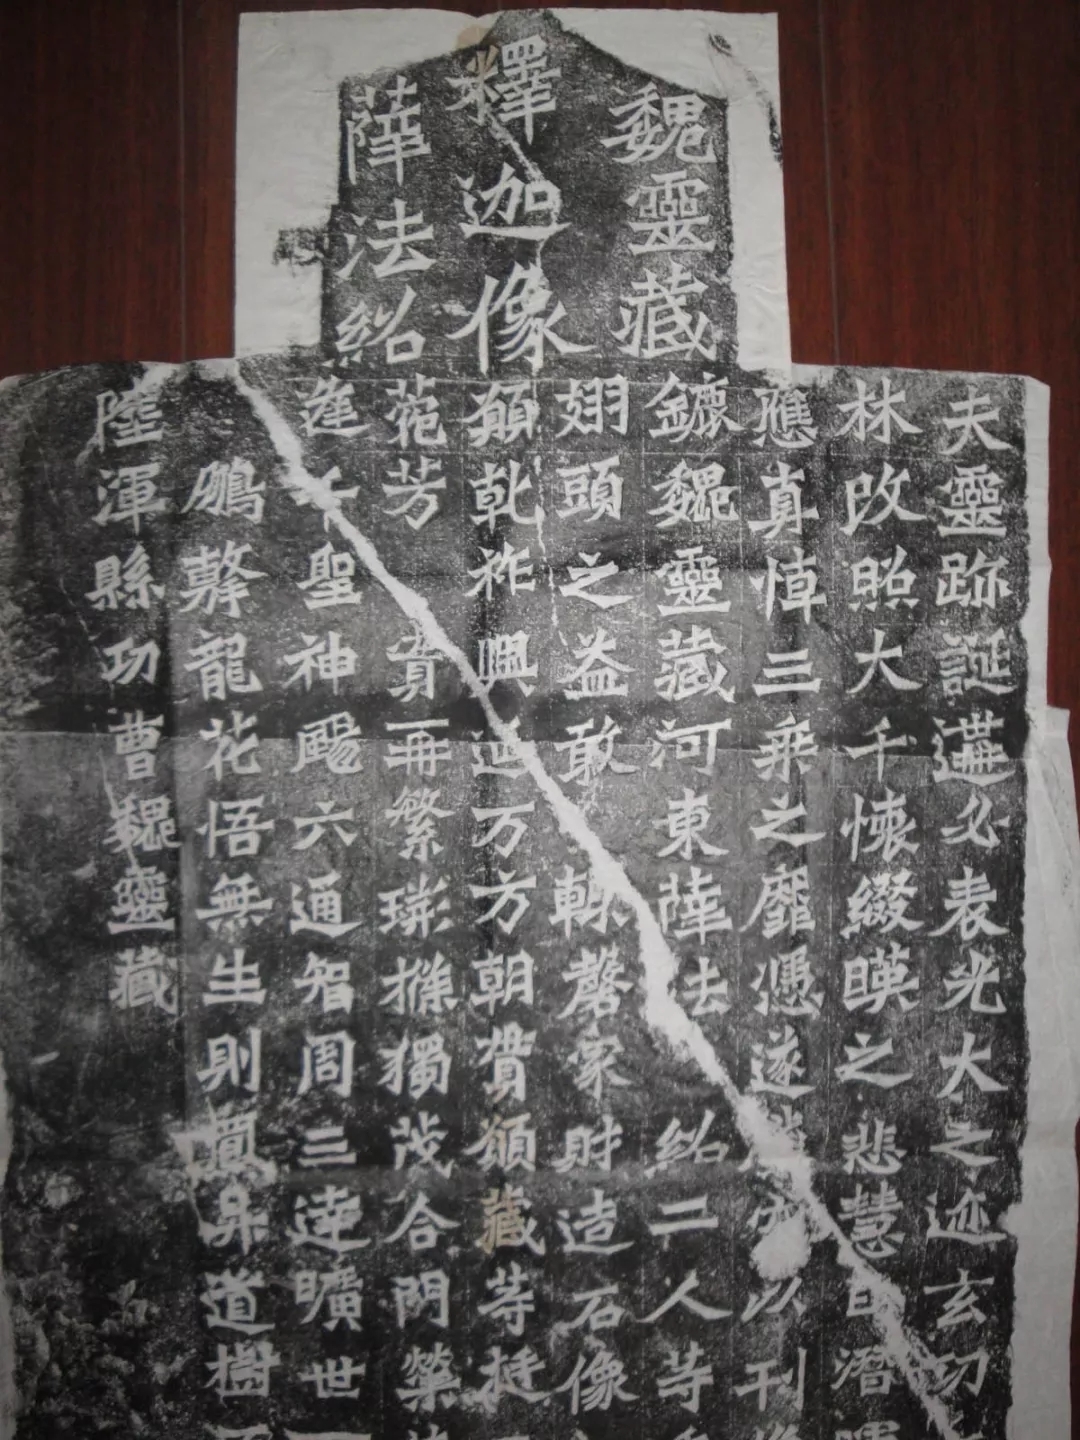 魏靈藏
釋迦像
薛法紹
夫靈跡誕遘必表光大之迹玄功
林改照大千懷綴暎之悲慧日潛
應真悼三乘之靡憑遂以刊
鏕魏靈藏河東薛法紹二人等
翅頭之益敢輒罄家財造石像
願乾祚興延万方朝貫願藏等挺
菀芳實再繁荊條獨茂合門榮
逢千聖神颺六通智周三達曠世
鵬擊龍花悟無生則鳳昇道樹
陸渾縣功曹魏靈藏